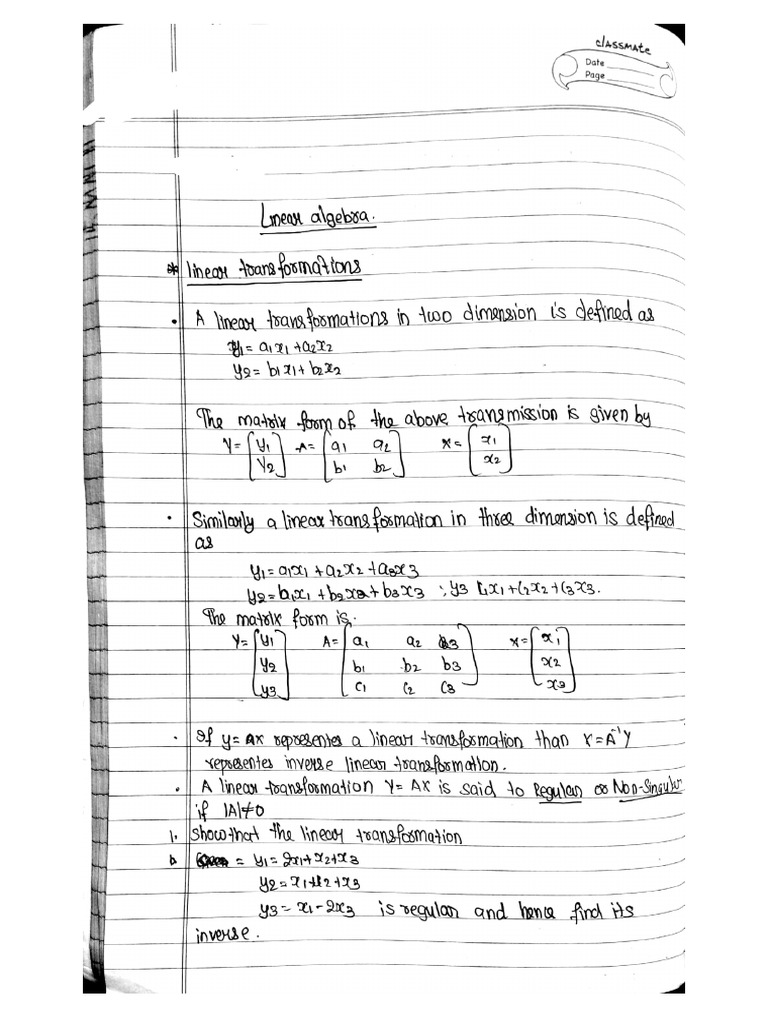 classmate
Date
Page
Linear algebra.
* linear transformations
• A linear transformations in two dimension is defined as
y1 = a1x1 + a2x2
y2 = b1x1 + b2x2
The matrix form of the above transmission is given by
Y = [y1 A = [a1 a2 X = [x1
y2] b1 b2] x2]
• Similarly a linear transformation in three dimension is defined
as
y1 = a1x1 + a2x2 + a3x3
y2 = b1x1 + b2x2 + b3x3 ; y3 = c1x1 + c2x2 + c3x3.
The matrix form is.
Y = [y1 A = [a1 a2 a3 X = [x1
y2 b1 b2 b3 x2
y3] c1 c2 c3] x3]
• If y = AX representes a linear transformation than X = A⁻¹Y
representes inverse linear transformation.
• A linear transformation Y = AX is said to Regular or Non-Singular
if |A| ≠ 0
1. Show that the linear transformation
= y1 = 2x1 + x2 + x3
y2 = x1 + x2 + x3
y3 = x1 - 2x3 is regular and hence find its
inverse.